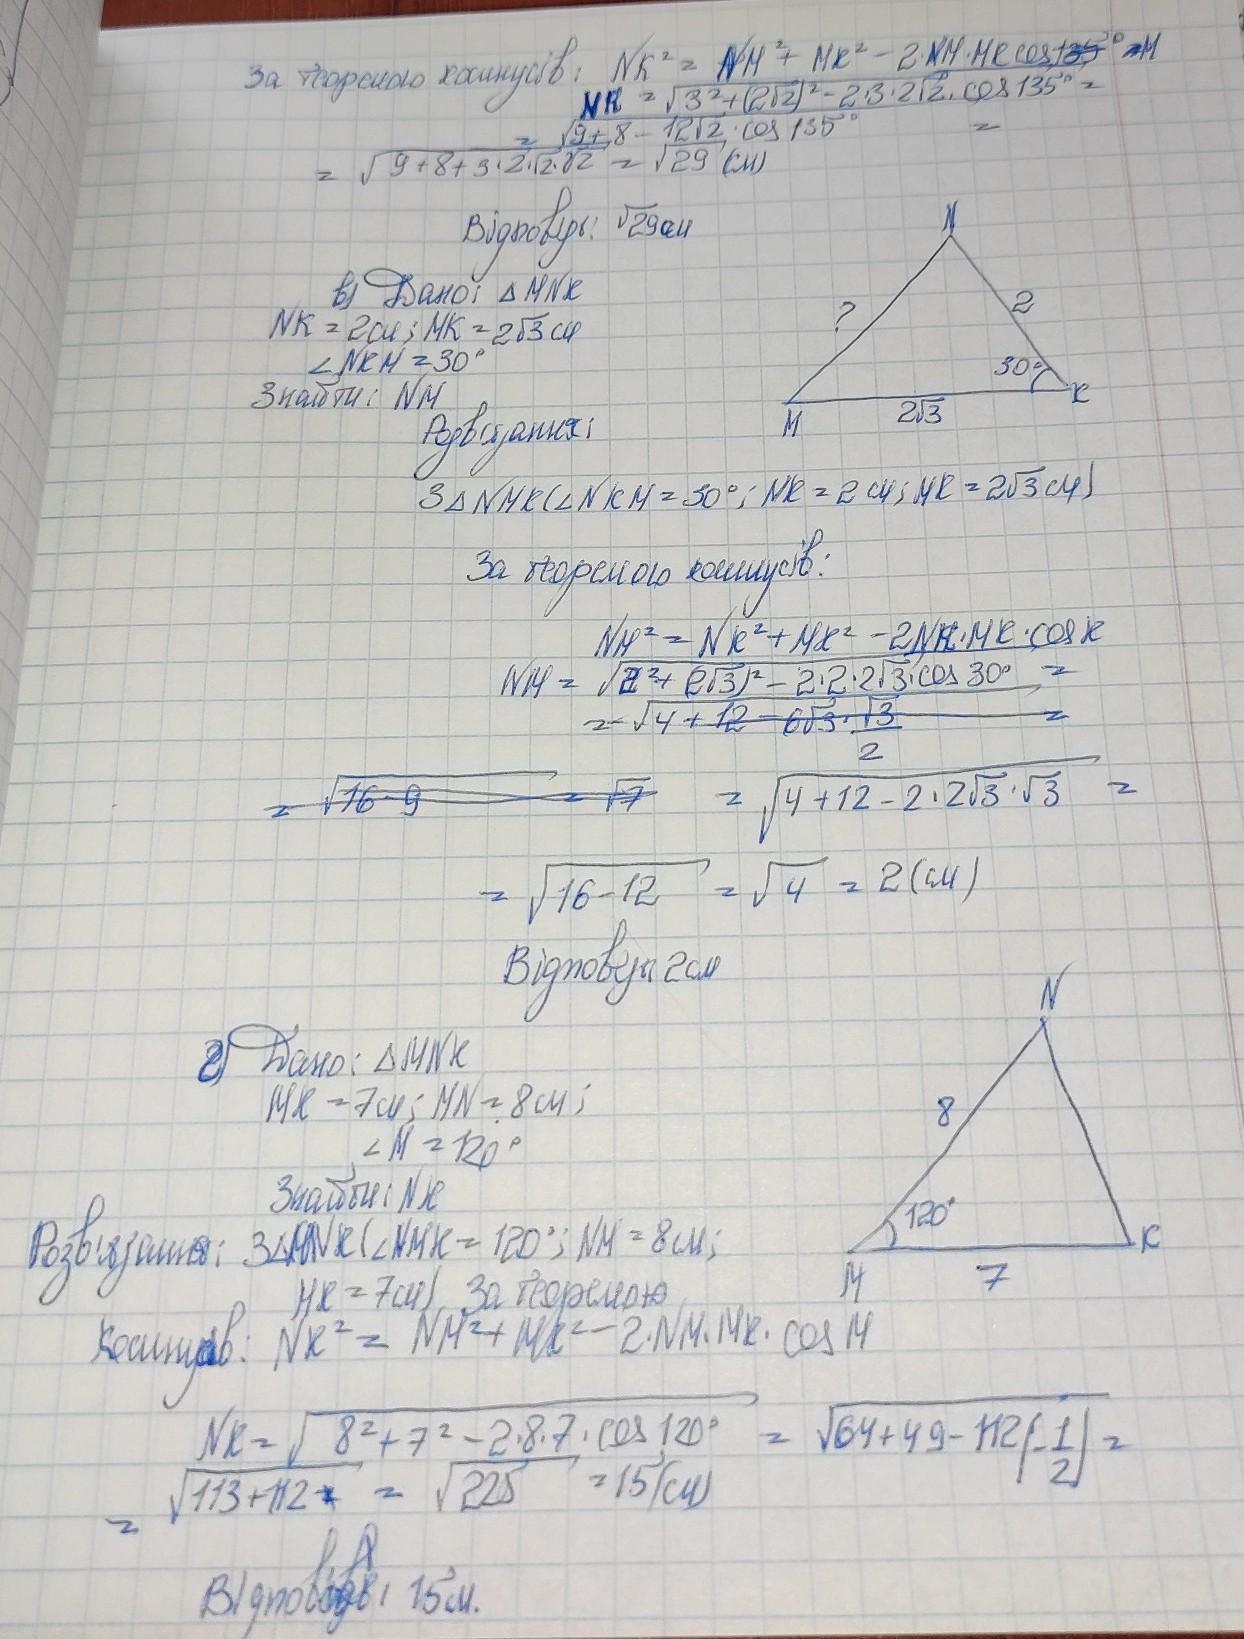 За теоремою косинусів: NK² = NM² + MK² - 2·NM·MK cos 135° =
NK = √3²+(2√2)² - 2·3·2√2·cos 135° =
= √9+8 - 12√2·cos 135° =
= √9+8+3·2·√2·√2 = √29 (см)
Відповідь: √29 см
в) Дано: △MNK
NK = 2см; MK = 2√3 см
∠NKM = 30°
Знайти: NM
Розв'язання:
N
?
2
30°
M
2√3
K
З △NMK (∠NKM = 30°; NK = 2 см; MK = 2√3 см)
За теоремою косинусів:
NM² = NK² + MK² - 2NK·MK·cos K
NM = √2² + (2√3)² - 2·2·2√3·cos 30° =
= √4 + 12 - 6√3·√3/2 =
= √16-9 = √7 = √4+12-2·2√3·√3 =
= √16-12 = √4 = 2 (см)
Відповідь 2см
г) Дано: △MNK
MK = 7см; MN = 8см;
∠M = 120°
Знайти: NK
N
8
120°
M
7
K
Розв'язання: З △MNK (∠NMK = 120°; NM = 8см;
MK = 7см) За теоремою
косинусів: NK² = NM² + MK² - 2·NM·MK·cos M
NK = √8²+7²-2·8·7·cos 120° = √64+49-112(-1/2) =
= √113+112 = √225 = 15 (см)
Відповідь: 15см.